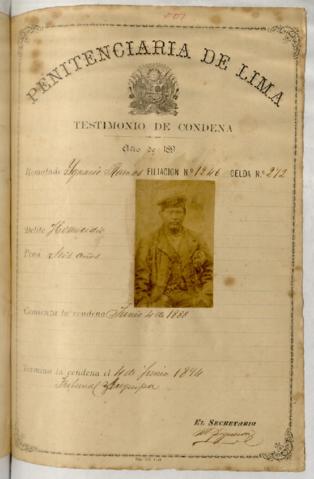 PENITENCIARIA DE LIMA
TESTIMONIO DE CONDENA
Año de 189
Rematado Ygnacio Ramos FILIACION N.º 1246 CELDA N.º 212
Delito Homicidio
Pena Seis años
Comienza la condena Junio 4 de 1888
Termina la condena el 4 de Junio 1894
Tribunal Arequipa
EL SECRETARIO